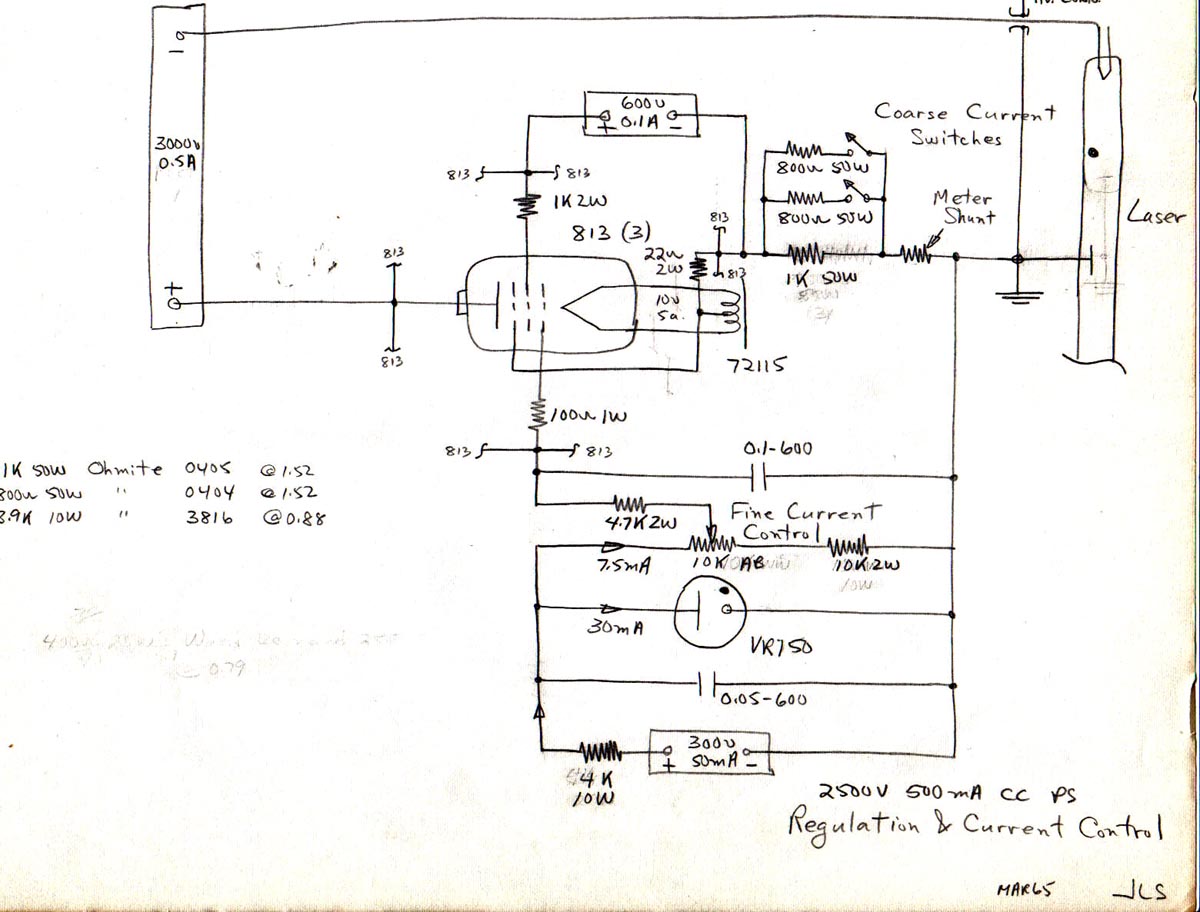 3000v
0.5A
+
600v
0.1A
+ -
813
813
1K 2W
813 (3)
Coarse Current
Switches
800Ω 50W
800Ω 50W
Meter
Shunt
Laser
813
22Ω
2W
813
1K 50W
813
10v
5a.
813
72115
100Ω 1W
813
813
1K 50W Ohmite 0405 @1.52
800Ω 50W " 0404 @1.52
3.9K 10W " 3816 @0.88
0.1-600
4.7K 2W
Fine Current
Control
7.5mA
10K AB
10K 2W
30mA
VR150
0.05-600
300v
50mA
+ -
4K
10W
2500V 500mA CC PS
Regulation & Current Control
MAR65 JLS